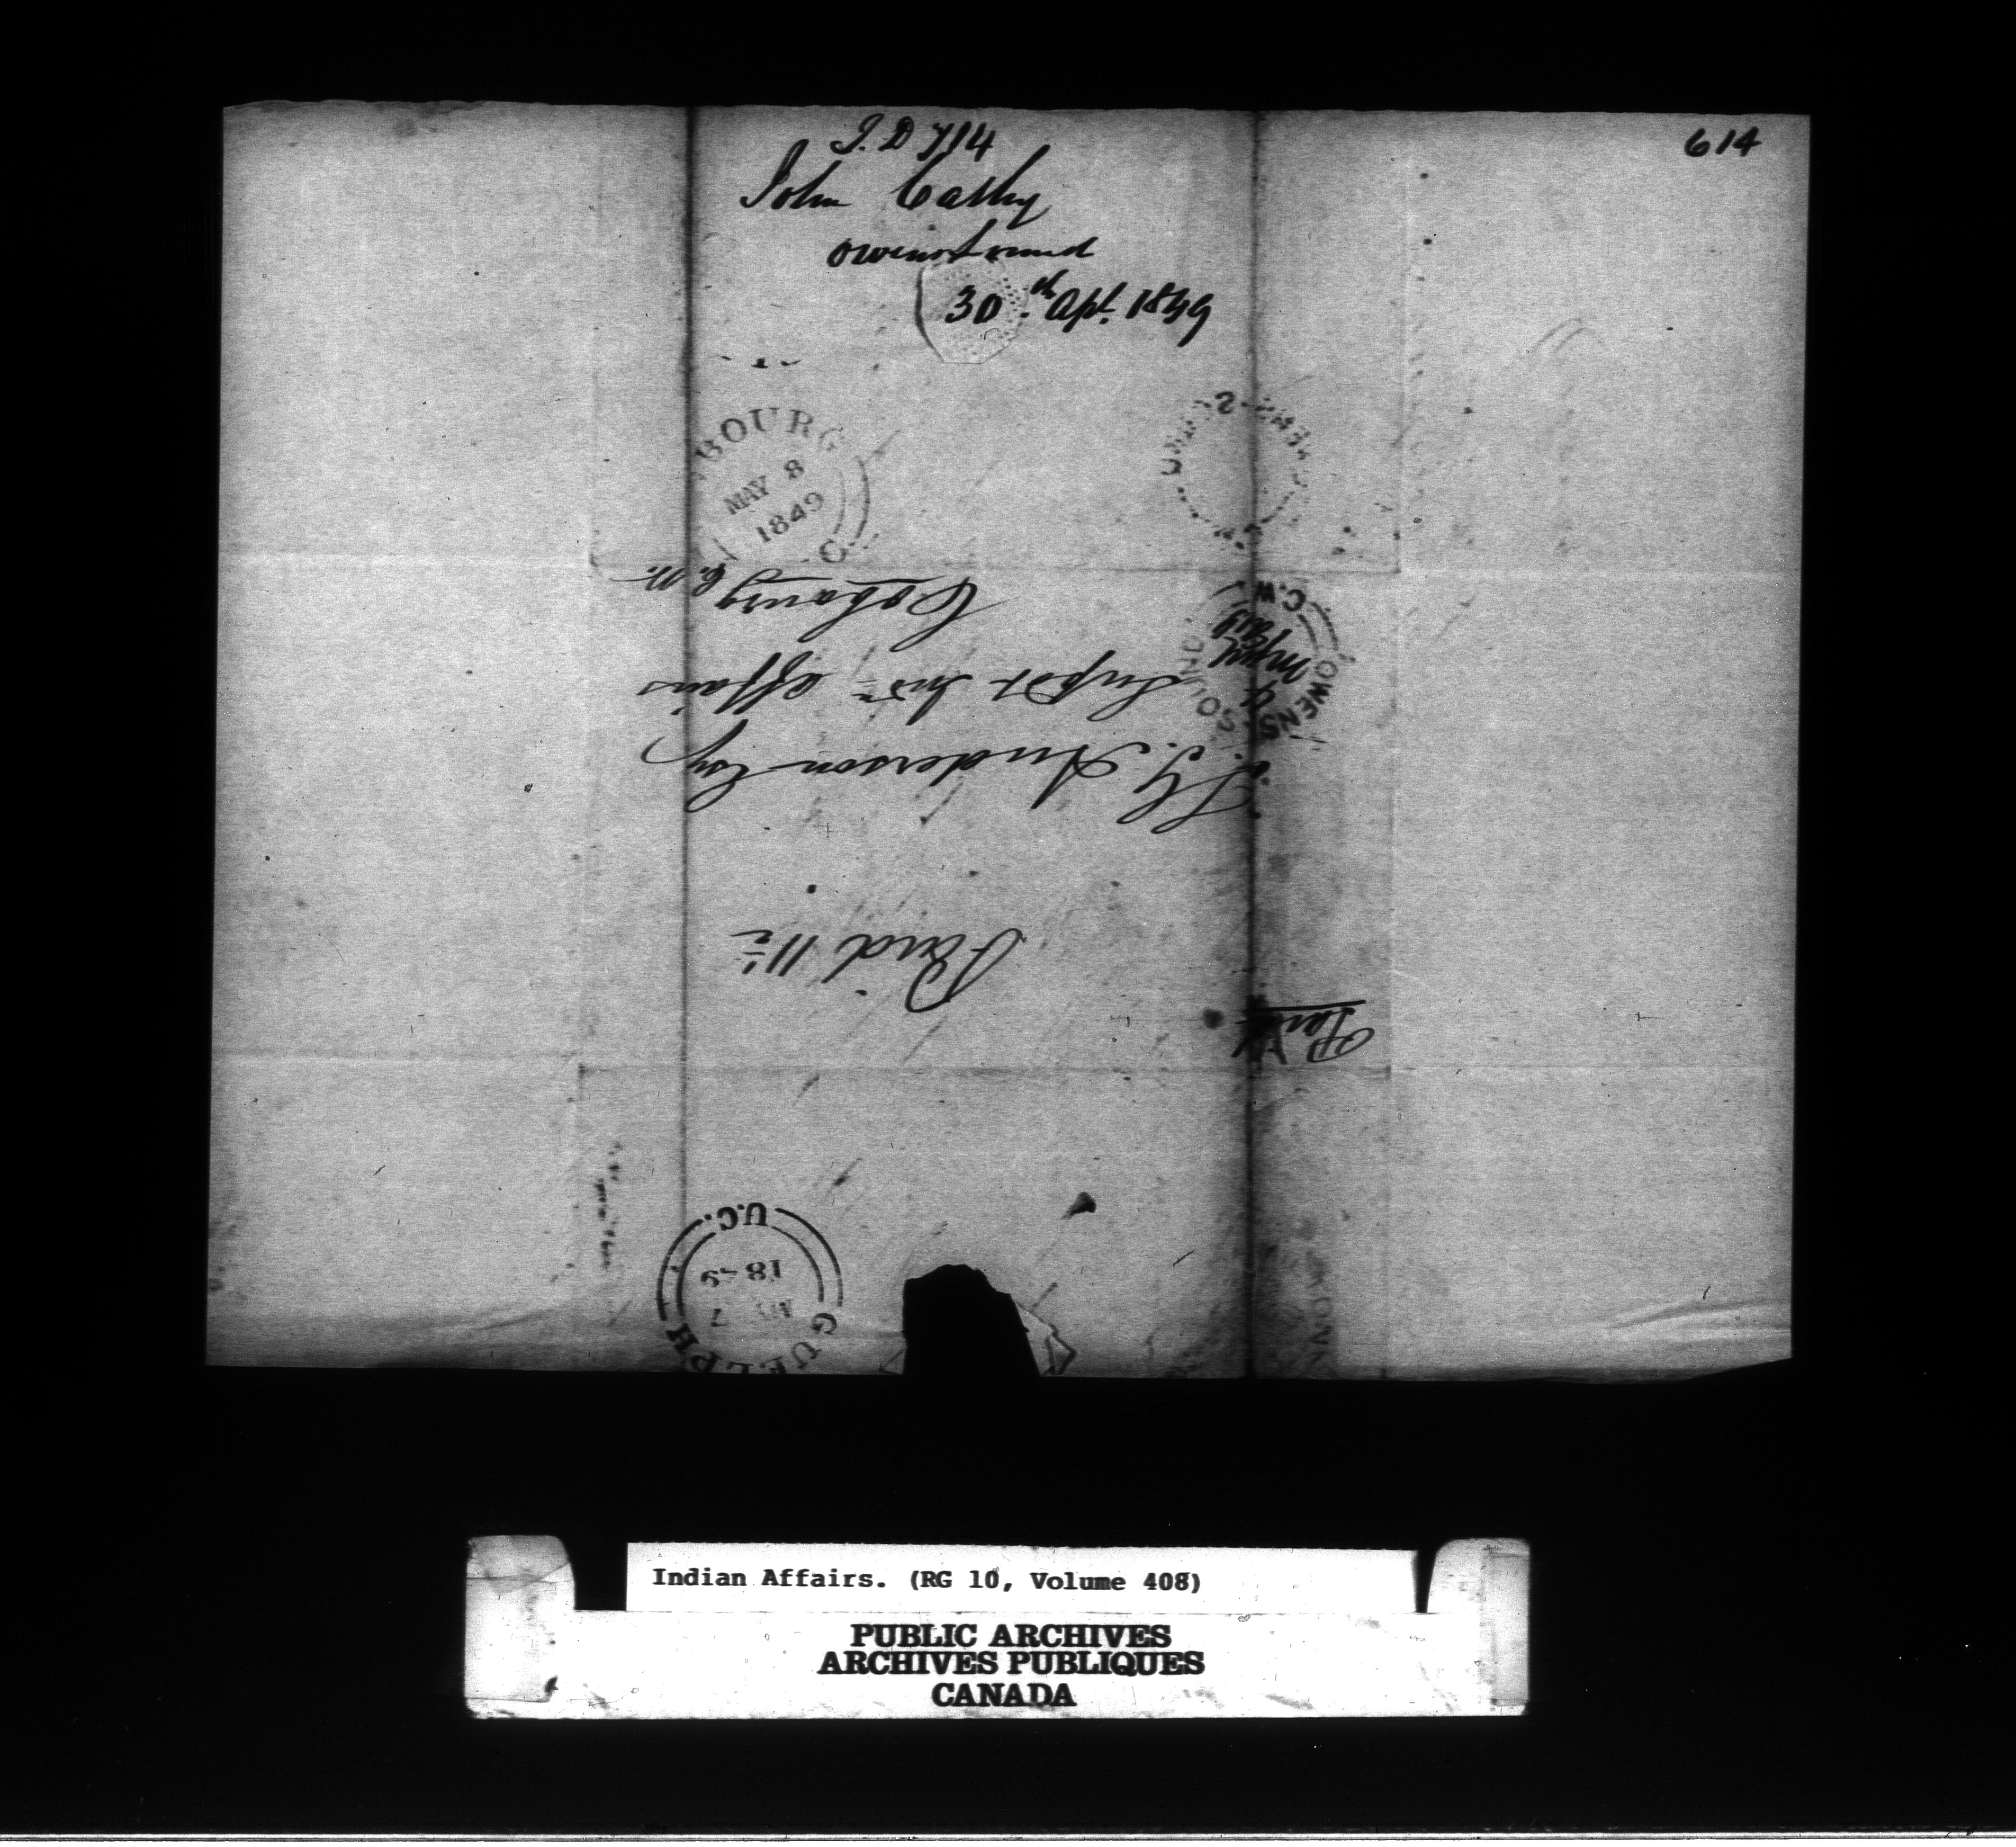 614
I. D 714
John Cathy
Owensound
30th Apl. 1849
BOURG
MAY 8
1849
C.
T. G. Anderson Esq
Supt Indn Affairs
Cobourg C. W.
OWENS SOUND
C.W.
Paid 11½
Paid
GUELPH
7
1849
U.C.
Indian Affairs. (RG 10, Volume 408)
PUBLIC ARCHIVES
ARCHIVES PUBLIQUES
CANADA